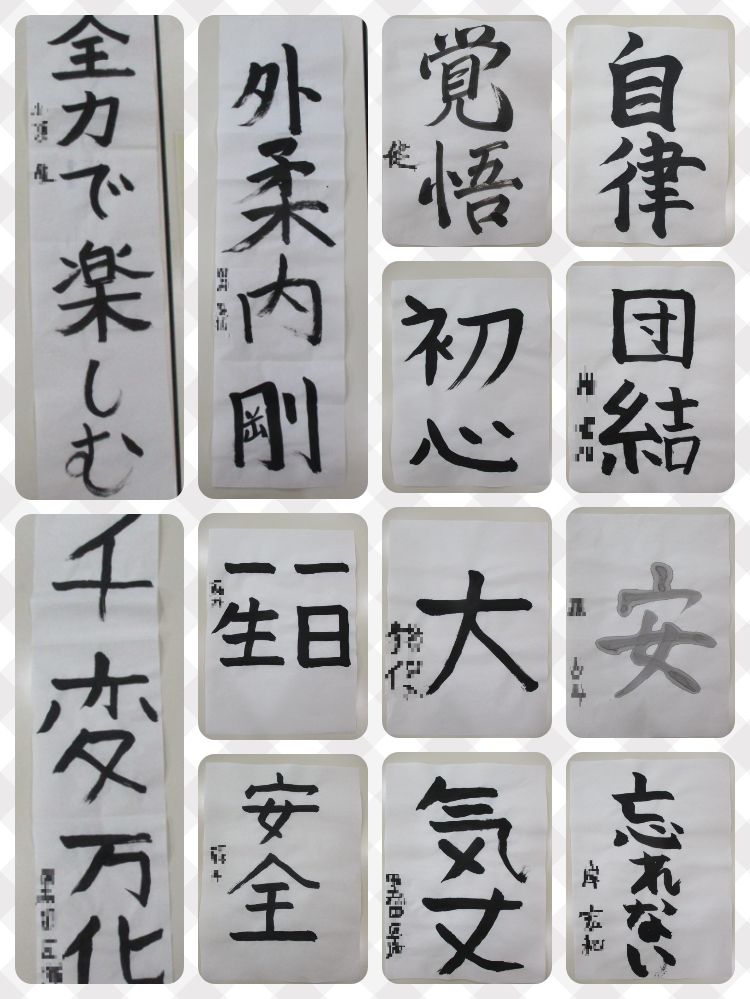 全力で楽しむ
外柔内剛
覚悟
自律
初心
団結
千変万化
一日
一生
大
安
安全
気丈
忘れない